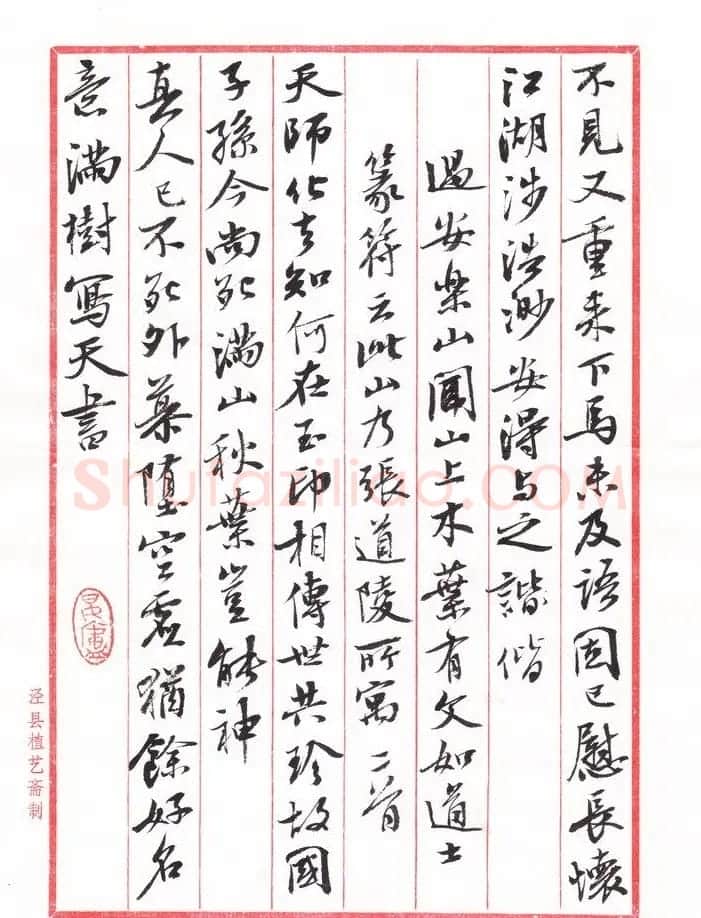 不見又重来下馬未及語固已慰長懷
江湖涉浩渺安得与之諧偕
過安樂山聞山上木葉有文如道士
篆符云此山乃張道陵所寓二首
天師化去知何在玉印相傳世共珍故國
子孫今尚死滿山秋葉豈能神
真人已不死外慕墮空虛猶餘好名
意滿樹寫天書
泾县檀艺斋制
Shufaziliao.COM